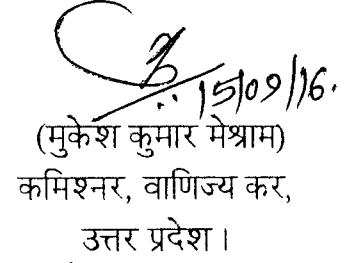 15/09/16.
(मुकेश कुमार मेश्राम)
कमिश्नर, वाणिज्य कर,
उत्तर प्रदेश।